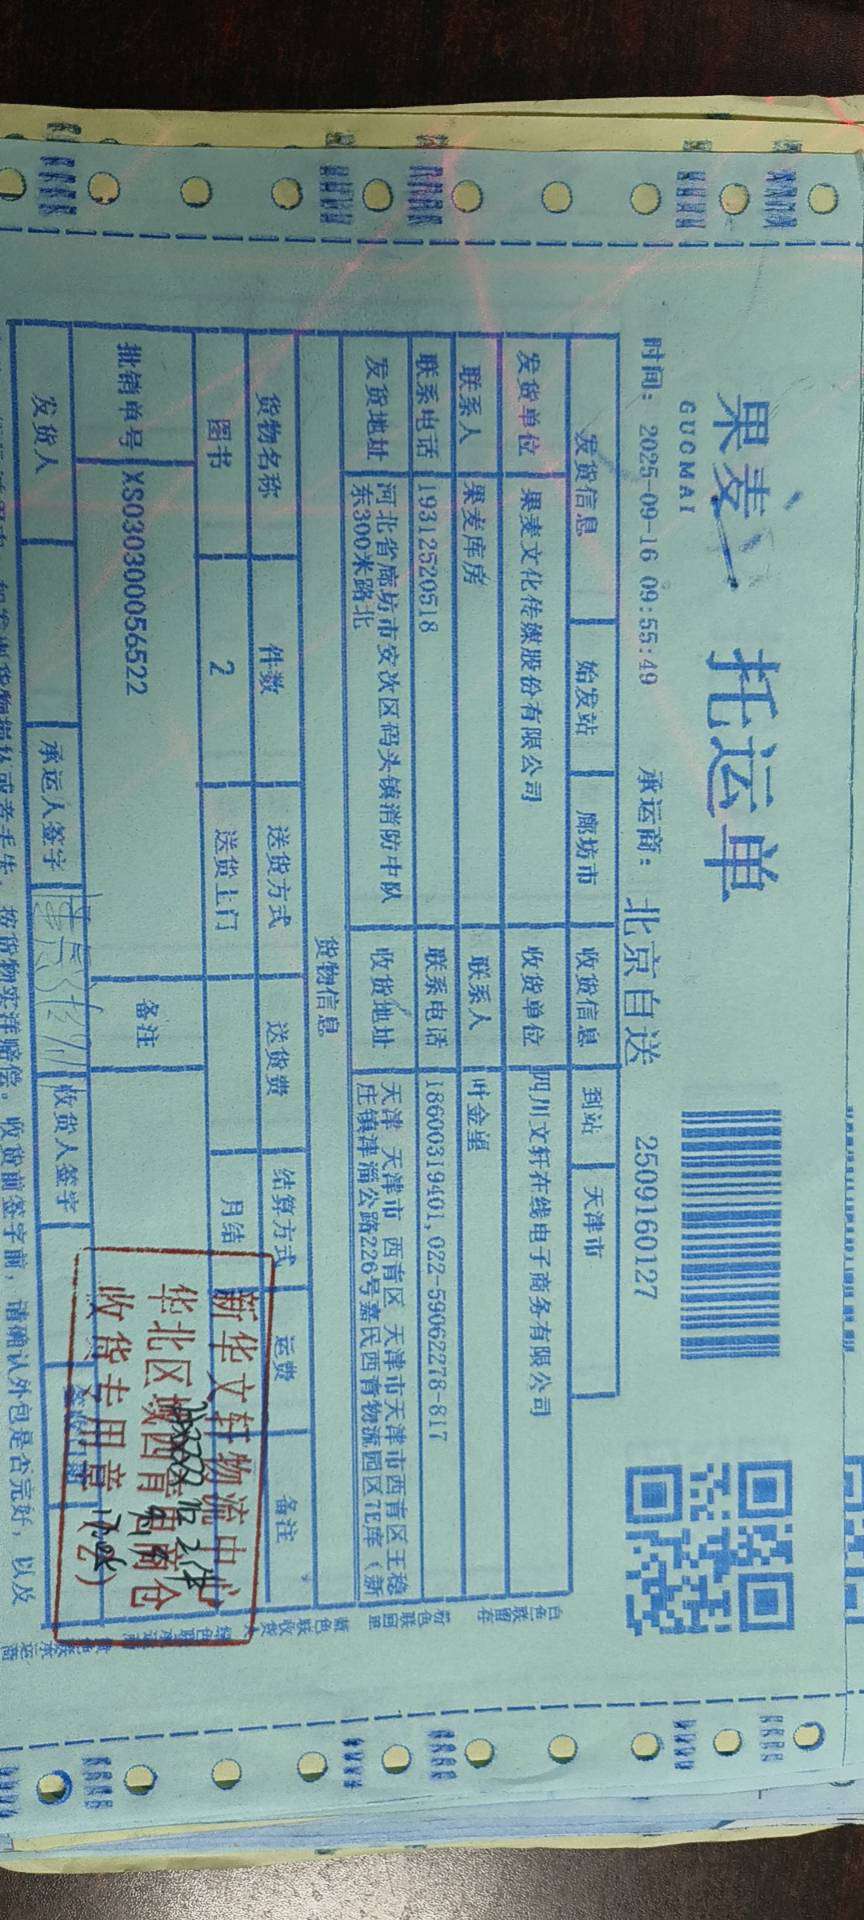 果麦 托运单
GUOMAI
时间: 2025-09-16 09:55:49 承运商: 北京自送 2509160127
发货信息 始发站 廊坊市 收货信息 到站 天津市
发货单位 果麦文化传媒股份有限公司 收货单位 四川文轩在线电子商务有限公司
联系人 果麦库房 联系人 叶金星
联系电话 19312520518 联系电话 18600319401,022-59062278-817
发货地址 河北省廊坊市安次区码头镇消防中队 收货地址 天津 天津市 西青区 天津市天津市西青区王稳
东300米路北 庄镇津淄公路226号嘉民西青物流园区7E库（新
货物信息
货物名称 件数 送货方式 送货费 结算方式 运费 备注
图书 2 送货上门 月结
批销单号 XS030300056522 备注
发货人 承运人签字 收货人签字
按货物实洋赔偿。收货前签字前，请确认外包是否完好，以及
新华文轩物流中心
华北区域西青电商仓
收货专用章
白色联留存
粉色联回单